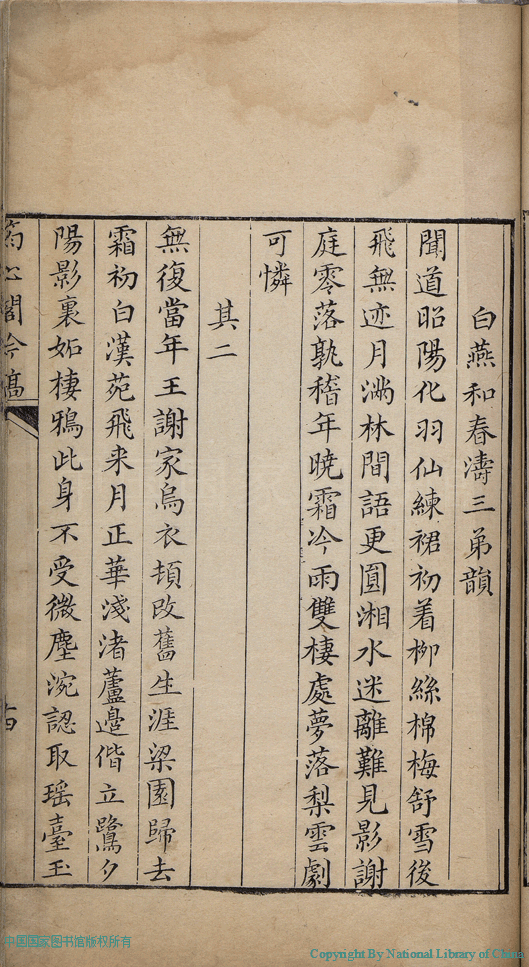 白燕和春濤三弟韻
聞道昭陽化羽仙練裙初着柳絲棉梅舒雪後
飛無迹月滿林間語更圓湘水迷離難見影謝
庭零落孰稽年曉霜冷雨雙棲處夢落梨雲劇
可憐
其二
無復當年王謝家烏衣頓改舊生涯梁園歸去
霜初白漢苑飛来月正華淺渚蘆邊偕立鷺夕
陽影裏妬棲鴉此身不受微塵涴認取瑶臺玉
筠心閣吟稾
中国国家图书馆版权所有
Copyright By National Library of China